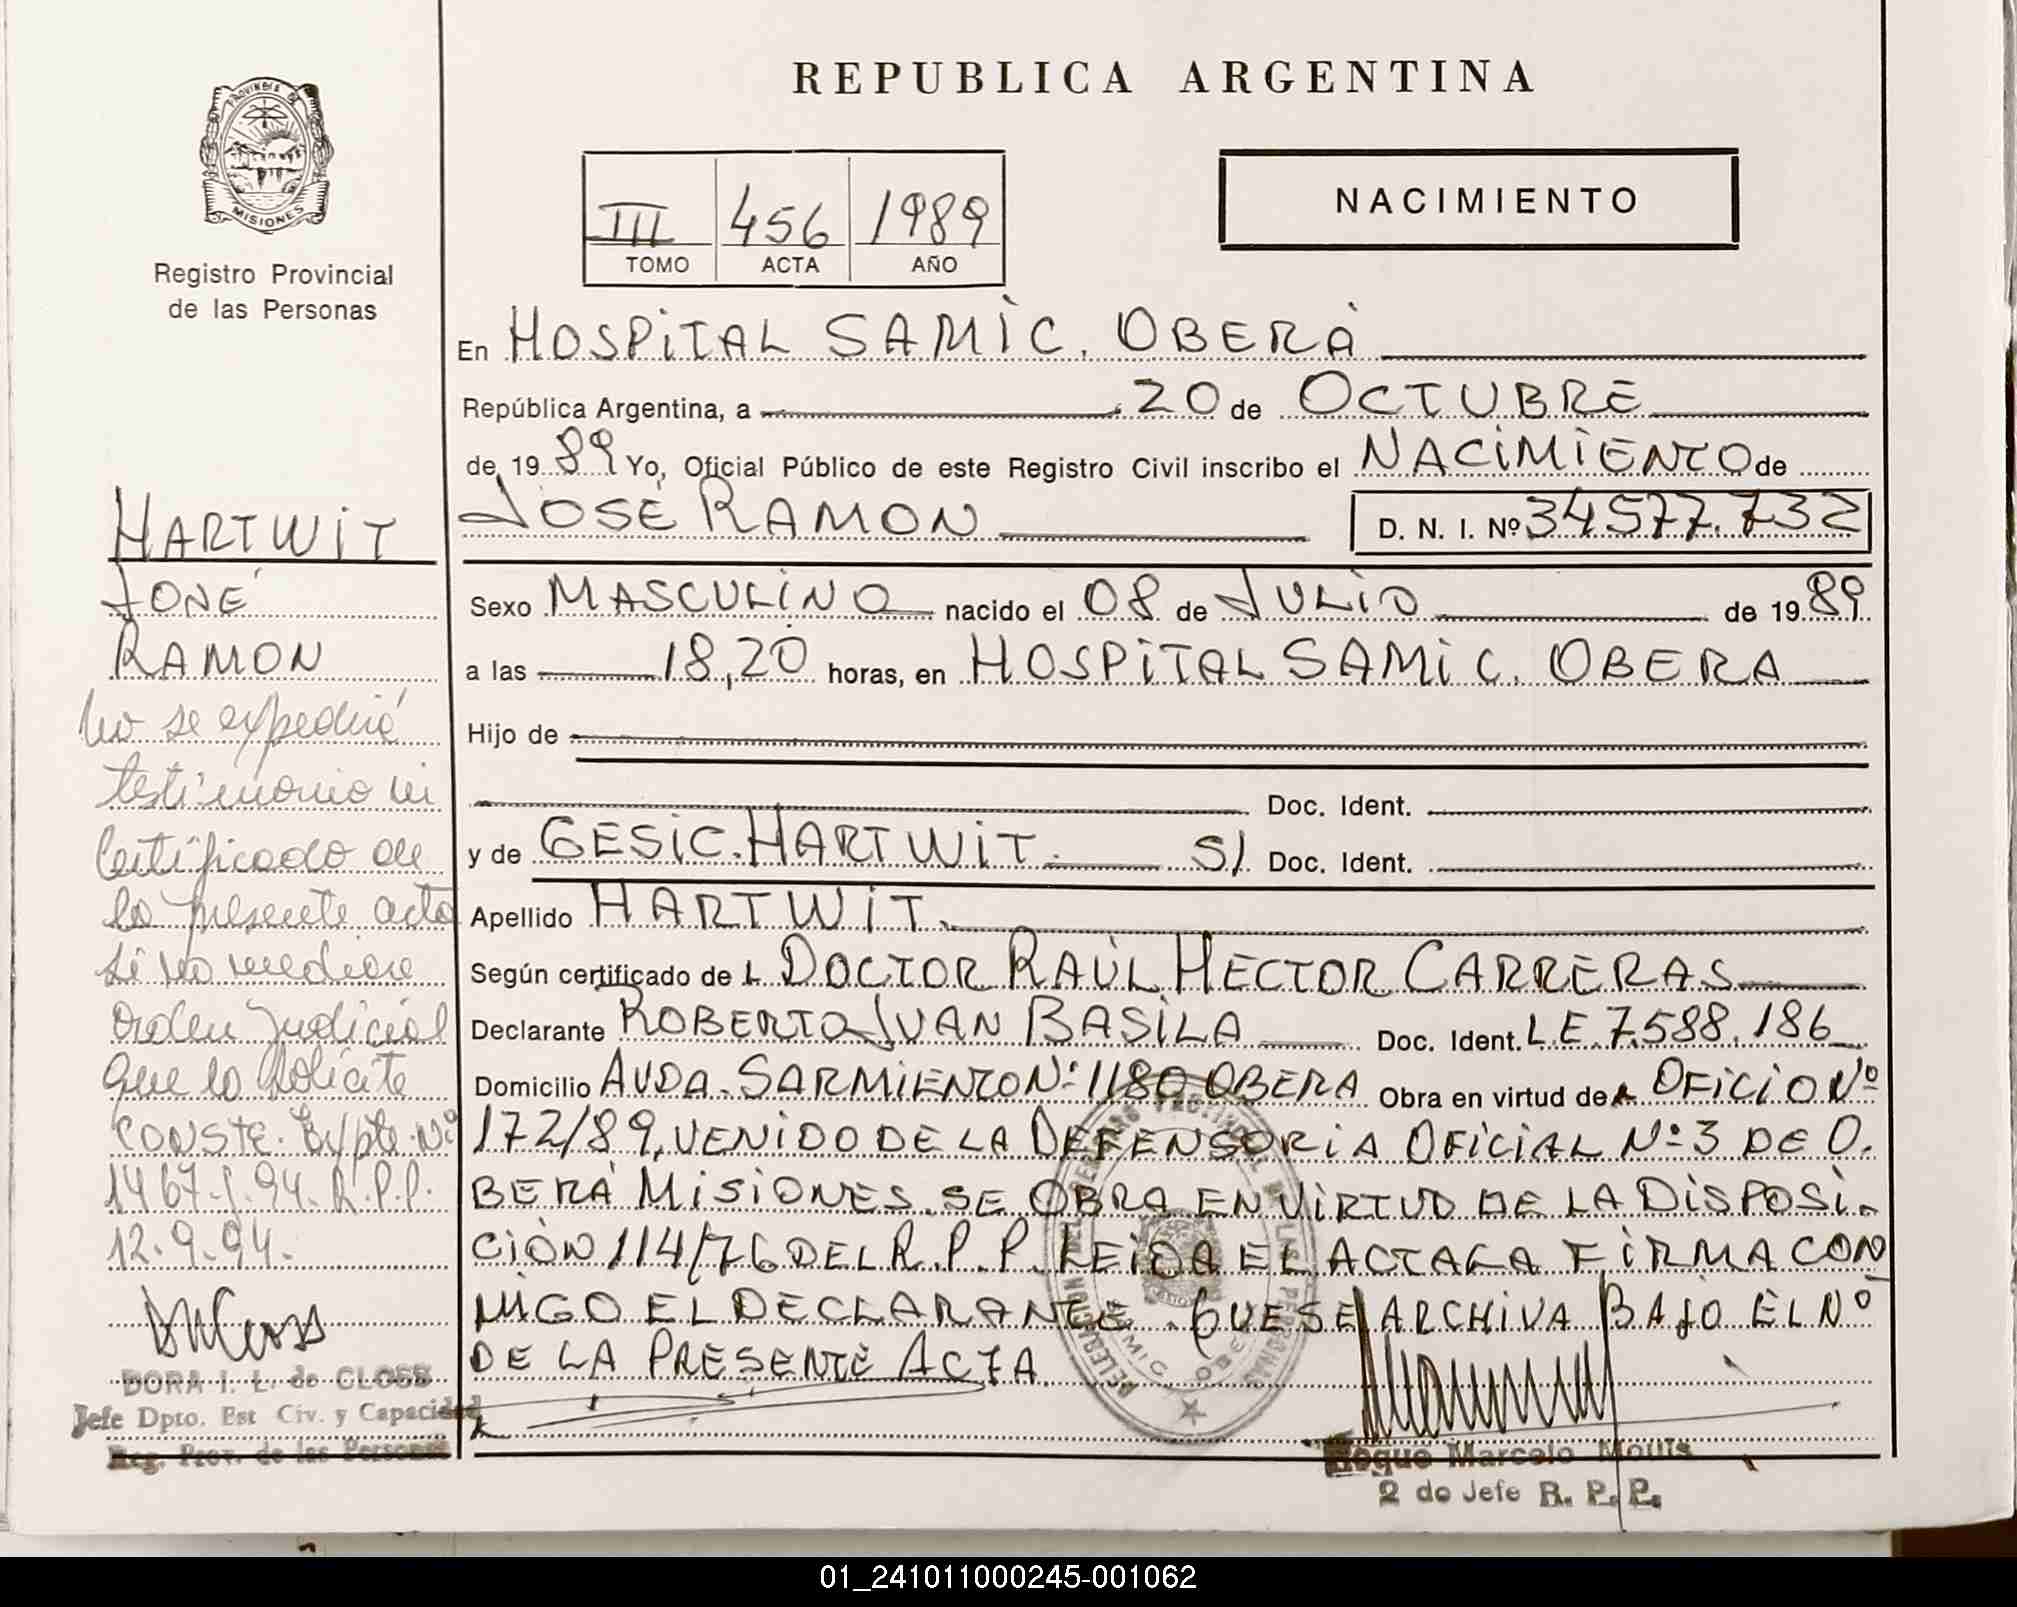 REPUBLICA ARGENTINA
PROVINCIA DE
MISIONES
Registro Provincial
de las Personas
III 456 1989
TOMO ACTA AÑO
NACIMIENTO
En HOSPITAL SAMIC. OBERÁ
República Argentina, a 20 de OCTUBRE
de 1989 Yo, Oficial Público de este Registro Civil inscribo el NACIMIENTO de
JOSÉ RAMON D. N. I. Nº 34577.732
Sexo MASCULINO nacido el 08 de JULIO de 1989
a las 18,20 horas, en HOSPITAL SAMIC. OBERA
Hijo de
Doc. Ident.
y de GESIC. HARTWIT. S/ Doc. Ident.
Apellido HARTWIT.
Según certificado de L DOCTOR RAÚL HECTOR CARRERAS
Declarante ROBERTO JUAN BASILA Doc. Ident. L.E. 7.588.186
Domicilio AVDA. SARMIENTO Nº 1180 OBERA Obra en virtud de OFICIO Nº
172/89, VENIDO DE LA DEFENSORIA OFICIAL Nº 3 DE O.
BERÁ MISIONES. SE OBRA EN VIRTUD DE LA DISPOSI.
CIÓN 114/76 DEL R.P.P. LEIDA EL ACTA LA FIRMA CON
MIGO EL DECLARANTE. QUE SE ARCHIVA BAJO EL Nº
DE LA PRESENTE ACTA
HARTWIT
JOSÉ
RAMON
No se expedirá
testimonio ni
Certificado de
la presente acta
si no mediare
orden judicial
que lo solicite
CONSTE. Expte. Nº
1467-J-94-R.P.P.
12.9.94.
DORA I. L. de CLOSS
Jefe Dpto. Est Civ. y Capacidad
Reg. Prov. de las Personas
Roque Marcelo
2 do Jefe R. P. P.
01_241011000245-001062